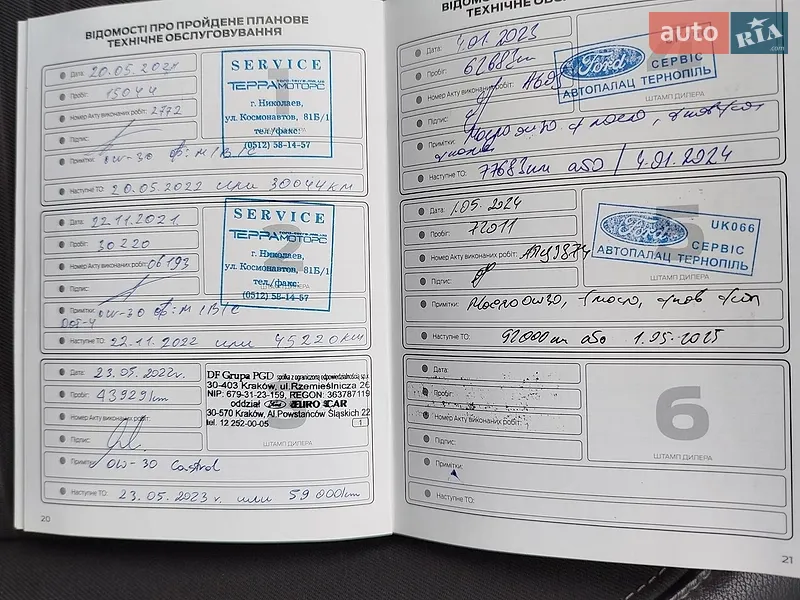 ВІДОМОСТІ ПРО ПРОЙДЕНЕ ПЛАНОВЕ
ТЕХНІЧНЕ ОБСЛУГОВУВАННЯ
Дата: 20.05.2021
Пробіг: 15044
Номер Акту виконаних робіт: 2772
Підпис:
Примітки: 0W-30 ф: М/В/С
Наступне ТО: 20.05.2022 или 30044 км
1
SERVICE
ТЕРРАМОТОРС
г. Николаев,
ул. Космонавтов, 81Б/1
тел./факс:
(0512) 58-14-57
Дата: 22.11.2021.
Пробіг: 30220
Номер Акту виконаних робіт: 06193
Підпис:
Примітки: 0W-30 ф: М/В/С
DOT-4
Наступне ТО: 22.11.2022 или 45220 км
2
SERVICE
ТЕРРАМОТОРС
г. Николаев,
ул. Космонавтов, 81Б/1
тел./факс:
(0512) 58-14-57
Дата: 23.05.2022г.
Пробіг: 43929 km
Номер Акту виконаних робіт:
Підпис:
Примітки: 0W-30 Castrol
Наступне ТО: 23.05.2023 г. или 59000 km
DF Grupa PGD spółka z ograniczoną odpowiedzialnością sp.k
30-403 Kraków, ul.Rzemieślnicza 26
NIP: 679-31-23-159, REGON: 363787119
oddział Ford EURO CAR
30-570 Kraków, Al.Powstańców Śląskich 22
tel. 12 252-00-05
1
ШТАМП ДИЛЕРА
20
ВІДОМОСТІ ПРО
ТЕХНІЧНЕ ОБСЛУГОВУВАННЯ
Дата: 4.01.2023
Пробіг: 62683
Номер Акту виконаних робіт:
Підпис:
Примітки:
Наступне ТО: 77683 км або 4.01.2024
Ford
СЕРВІС
АВТОПАЛАЦ ТЕРНОПІЛЬ
ШТАМП ДИЛЕРА
Дата: 1.05.2024
Пробіг: 77011
Номер Акту виконаних робіт:
Підпис:
Примітки: Масло 0w30, ф масло,
Наступне ТО: 92000 км або 1.05.2025
5
Ford
UK066
СЕРВІС
АВТОПАЛАЦ ТЕРНОПІЛЬ
ШТАМП ДИЛЕРА
Дата:
Пробіг:
Номер Акту виконаних робіт:
Підпис:
Примітки:
Наступне ТО:
6
ШТАМП ДИЛЕРА
21
auto RIA
.com